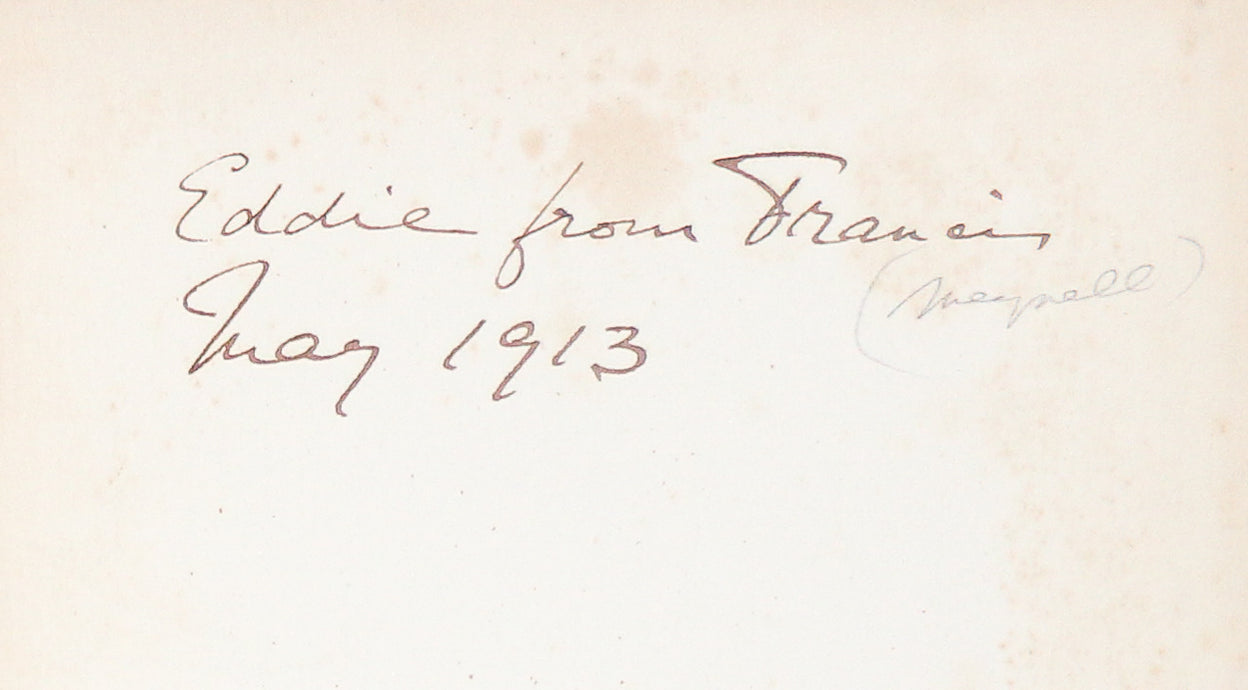 Eddie from Francis
(Meynell)
May 1913